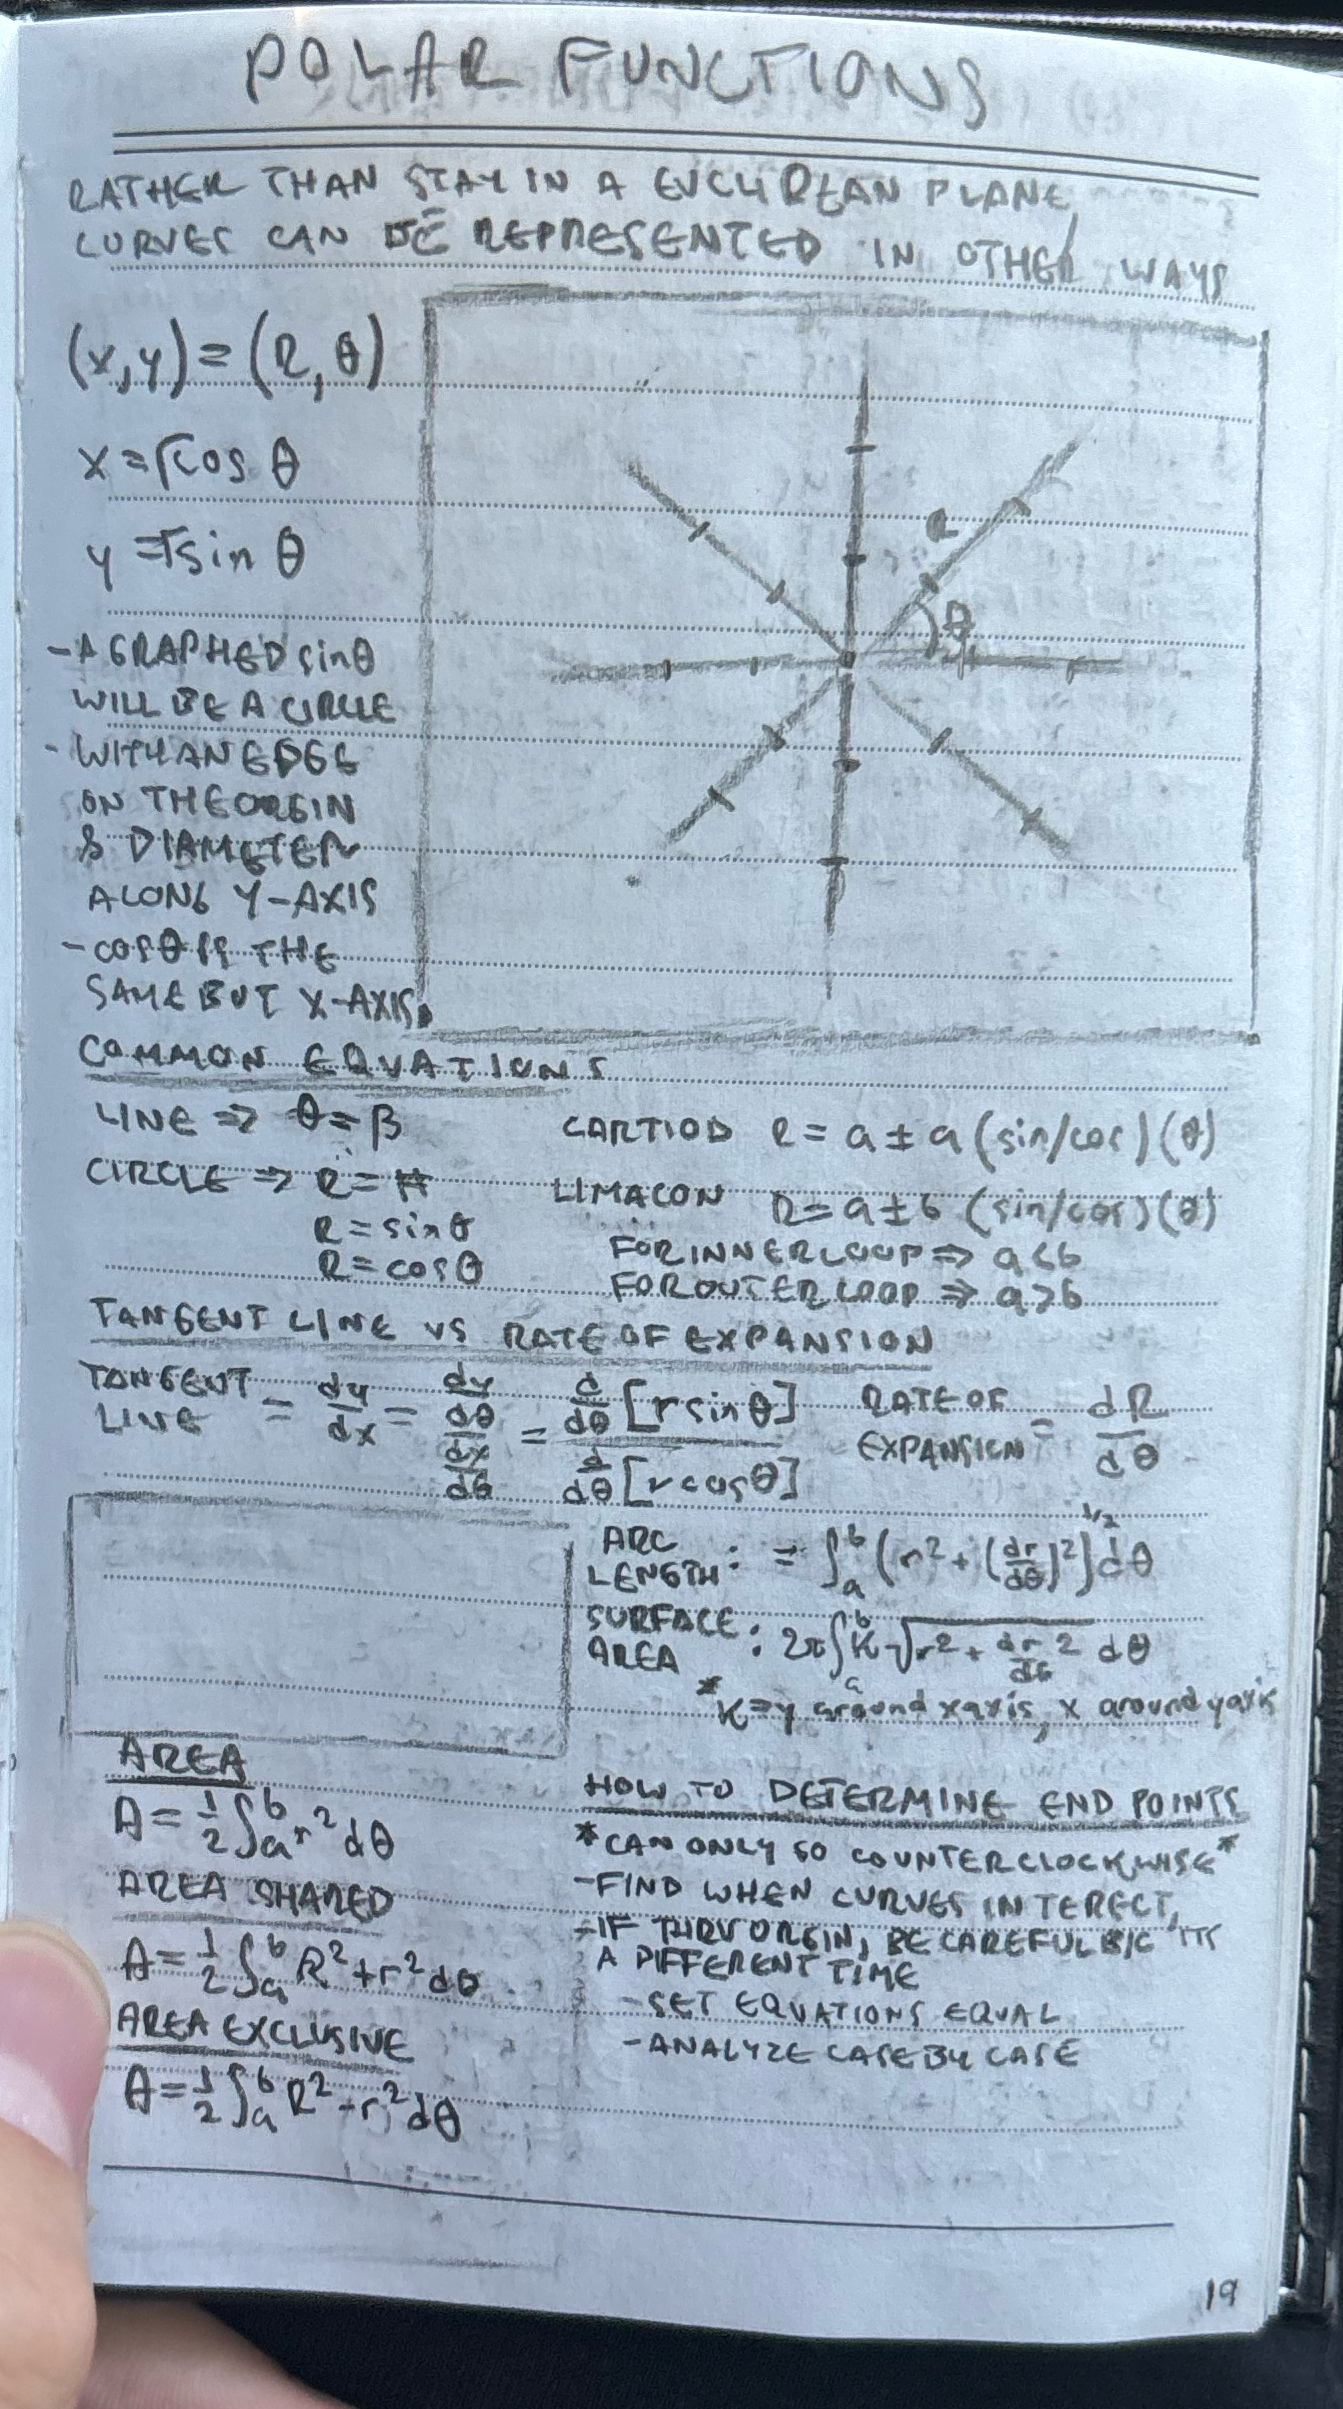 POLAR FUNCTIONS
RATHER THAN STAY IN A EUCLIDEAN PLANE,
CURVES CAN BE REPRESENTED IN OTHER WAYS
(x,y) = (R,θ)
x = rcos θ
y = rsin θ
R
θ
- A GRAPHED sinθ
WILL BE A CIRCLE
- WITH AN EDGE
ON THE ORGIN
& DIAMETER
ALONG Y-AXIS
- cosθ IS THE
SAME BUT X-AXIS
COMMON EQUATIONS
LINE ⇒ θ = β
CIRCLE ⇒ R = #
R = sinθ
R = cosθ
CARTIOD R = a ± a (sin/cos)(θ)
LIMACON R = a ± b (sin/cos)(θ)
FOR INNER LOOP ⇒ a < b
FOR OUTER LOOP ⇒ a > b
TANGENT LINE VS RATE OF EXPANSION
TANGENT LINE = dy/dx = (dy/dθ)/(dx/dθ) = (d/dθ [r sinθ])/(d/dθ [r cosθ])
RATE OF EXPANSION = dR/dθ
ARC LENGTH: = ∫ₐᵇ (r² + (dr/dθ)²)^1/2 dθ
SURFACE AREA: 2π∫ₐᵇ K √(r² + dr/dθ ²) dθ
* K ⇒ y around x axis, x around y axis
AREA
A = 1/2 ∫ₐᵇ r² dθ
AREA SHARED
A = 1/2 ∫ₐᵇ R² + r² dθ
AREA EXCLUSIVE
A = 1/2 ∫ₐᵇ R² - r² dθ
HOW TO DETERMINE END POINTS
* CAN ONLY GO COUNTERCLOCKWISE *
- FIND WHEN CURVES INTERECT,
- IF THRU ORGIN, BE CAREFUL B/C ITS
A DIFFERENT TIME
- SET EQUATIONS EQUAL
- ANALYZE CASE BY CASE
19